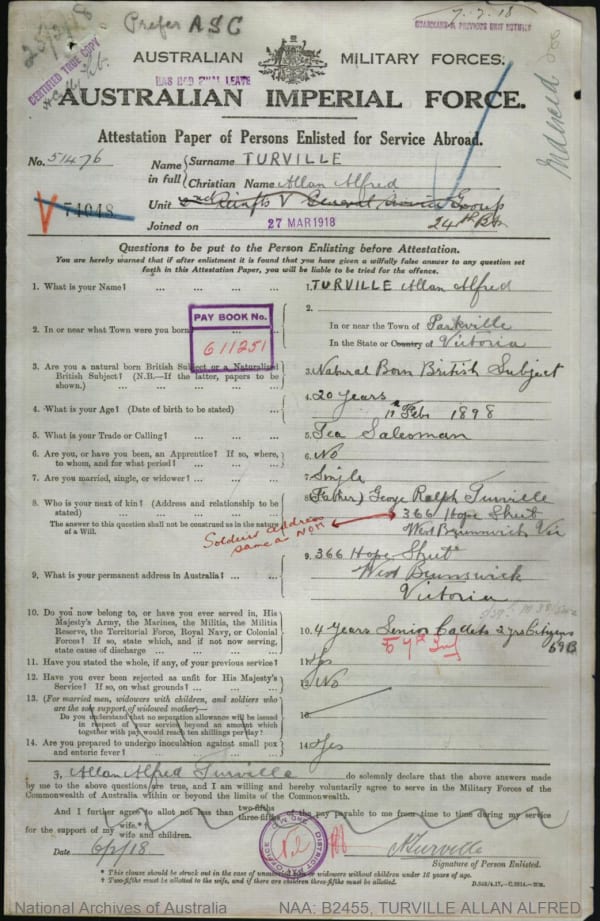 Prefer ASC
7.7.18
CERTIFIED TRUE COPY
AUSTRALIAN MILITARY FORCES.
HAS HAD FINAL LEAVE
AUSTRALIAN IMPERIAL FORCE.
Attestation Paper of Persons Enlisted for Service Abroad.
No. 51476
Name in full { Surname TURVILLE
Christian Name Allan Alfred
V 74048
Unit General Service
24th Bn
Joined on 27 MAR 1918
Questions to be put to the Person Enlisting before Attestation.
You are hereby warned that if after enlistment it is found that you have given a wilfully false answer to any question set
forth in this Attestation Paper, you will be liable to be tried for the offence.
1. What is your Name? ... ... ... 1. TURVILLE Allan Alfred
PAY BOOK No.
611251
2. In or near what Town were you born ... ... 2. In or near the Town of Parkville
In the State or Country of Victoria
3. Are you a natural born British Subject or a Naturalized
British Subject? (N.B.—If the latter, papers to be
shown.) ... ... 3. Natural Born British Subject
4. What is your Age? (Date of birth to be stated) ... 4. 20 Years
Feb 1898
5. What is your Trade or Calling? ... ... 5. Tea Salesman
6. Are you, or have you been, an Apprentice? If so, where,
to whom, and for what period? ... ... 6. No
7. Are you married, single, or widower? ... 7. Single
8. Who is your next of kin? (Address and relationship to be
stated) ... 8. (Father) George Ralph Turville
366 Hope Street
West Brunswick Vic
The answer to this question shall not be construed as in the nature
of a Will.
Soldiers address
same as NOK
9. What is your permanent address in Australia? ... 9. 366 Hope Street
West Brunswick
Victoria
10. Do you now belong to, or have you ever served in, His
Majesty's Army, the Marines, the Militia, the Militia
Reserve, the Territorial Force, Royal Navy, or Colonial
Forces? If so, state which, and if not now serving,
state cause of discharge ... 10. 4 Years Senior Cadets 2 yrs Citizens
69B
11. Have you stated the whole, if any, of your previous service? 11. Yes
12. Have you ever been rejected as unfit for His Majesty's
Service? If so, on what grounds? ... 12. No
13. (For married men, widowers with children, and soldiers who
are the sole support of widowed mother)—
Do you understand that no separation allowance will be issued
in respect of your service beyond an amount which
together with pay would reach ten shillings per day? ... 13.
14. Are you prepared to undergo inoculation against small pox
and enteric fever? ... 14. Yes
I, Allan Alfred Turville do solemnly declare that the above answers made
by me to the above questions are true, and I am willing and hereby voluntarily agree to serve in the Military Forces of the
Commonwealth of Australia within or beyond the limits of the Commonwealth.
And I further agree to allot not less than two-fifths three-fifths of the pay payable to me from time to time during my service
for the support of my wife.* wife and children.
Date 6/2/18
A Turville
Signature of Person Enlisted.
* This clause should be struck out in the case of unmarried men or widowers without children under 16 years of age.
† Two-fifths must be allotted to the wife, and if there are children three-fifths must be allotted.
National Archives of Australia
NAA: B2455, TURVILLE ALLAN ALFRED